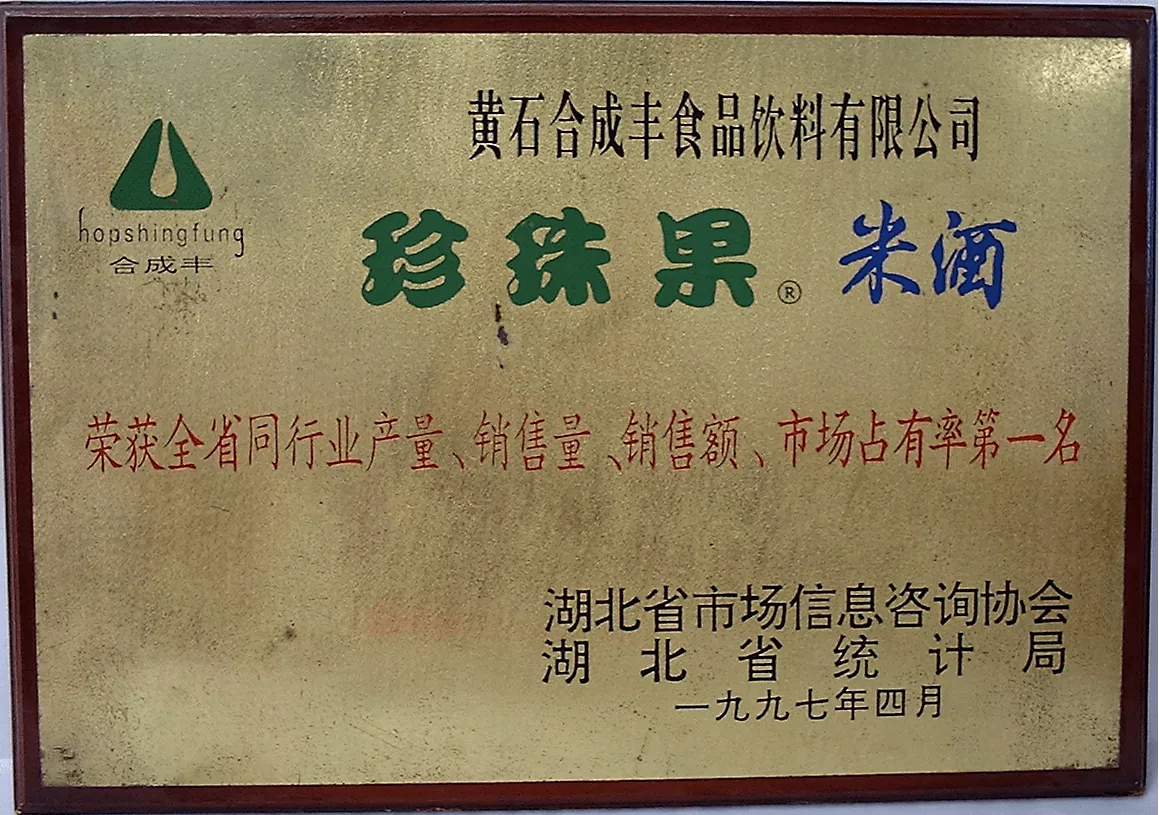 黄石合成丰食品饮料有限公司
hopshingfung
合成丰
珍珠果® 米酒
荣获全省同行业产量、销售量、销售额、市场占有率第一名
湖北省市场信息咨询协会
湖北省统计局
一九九七年四月